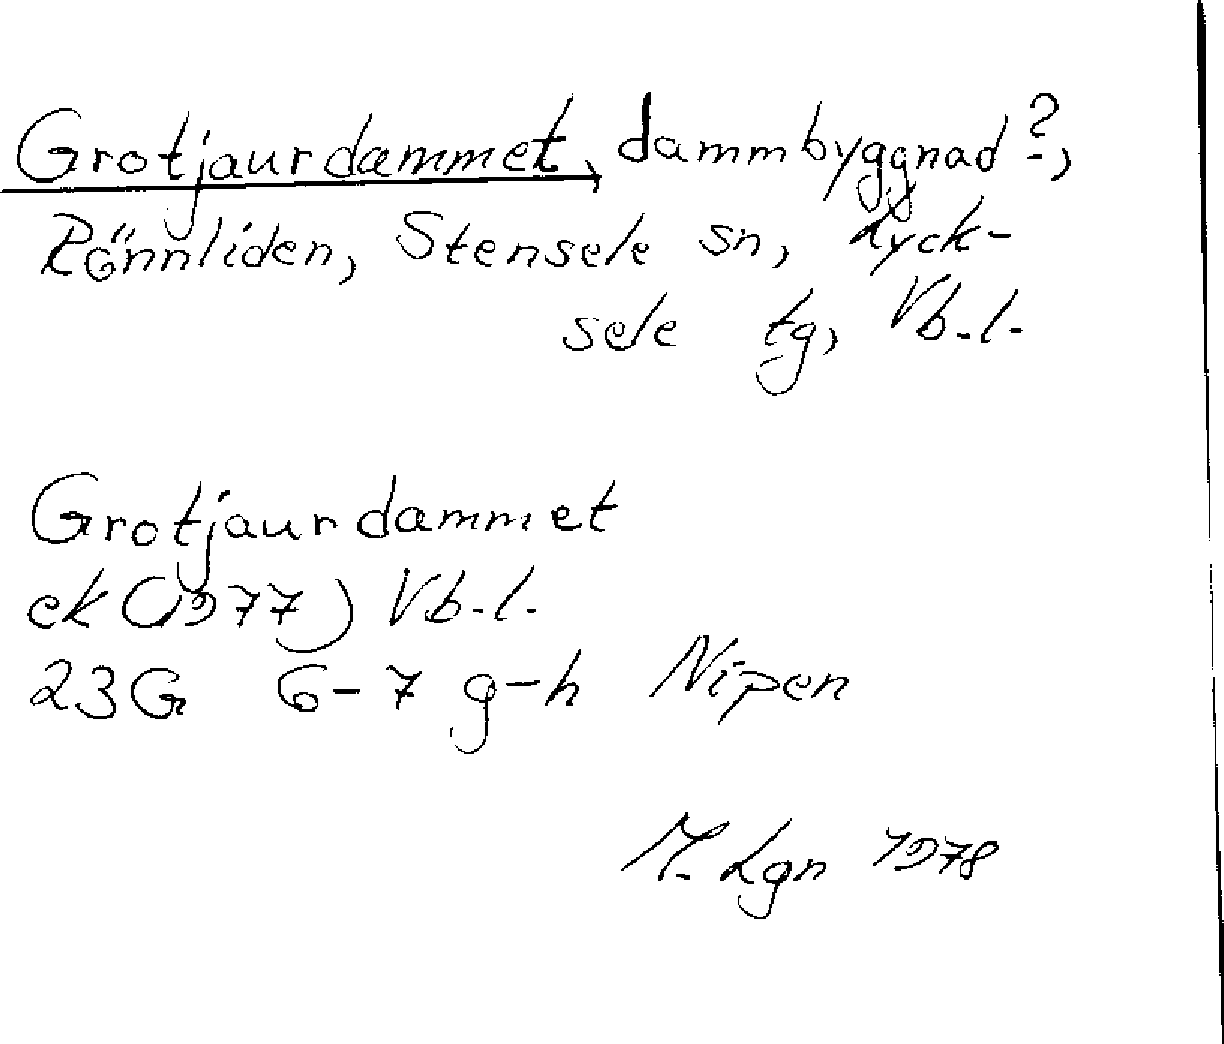 Grotjaurdammet, dammbyggnad?,
Rönnliden, Stensele sn, Lyck-
sele tg, Vb.l.
Grotjaurdammet
ek (1977) Vb.l.
23G 6-7 g-h Nipen
M. Lgn 1978